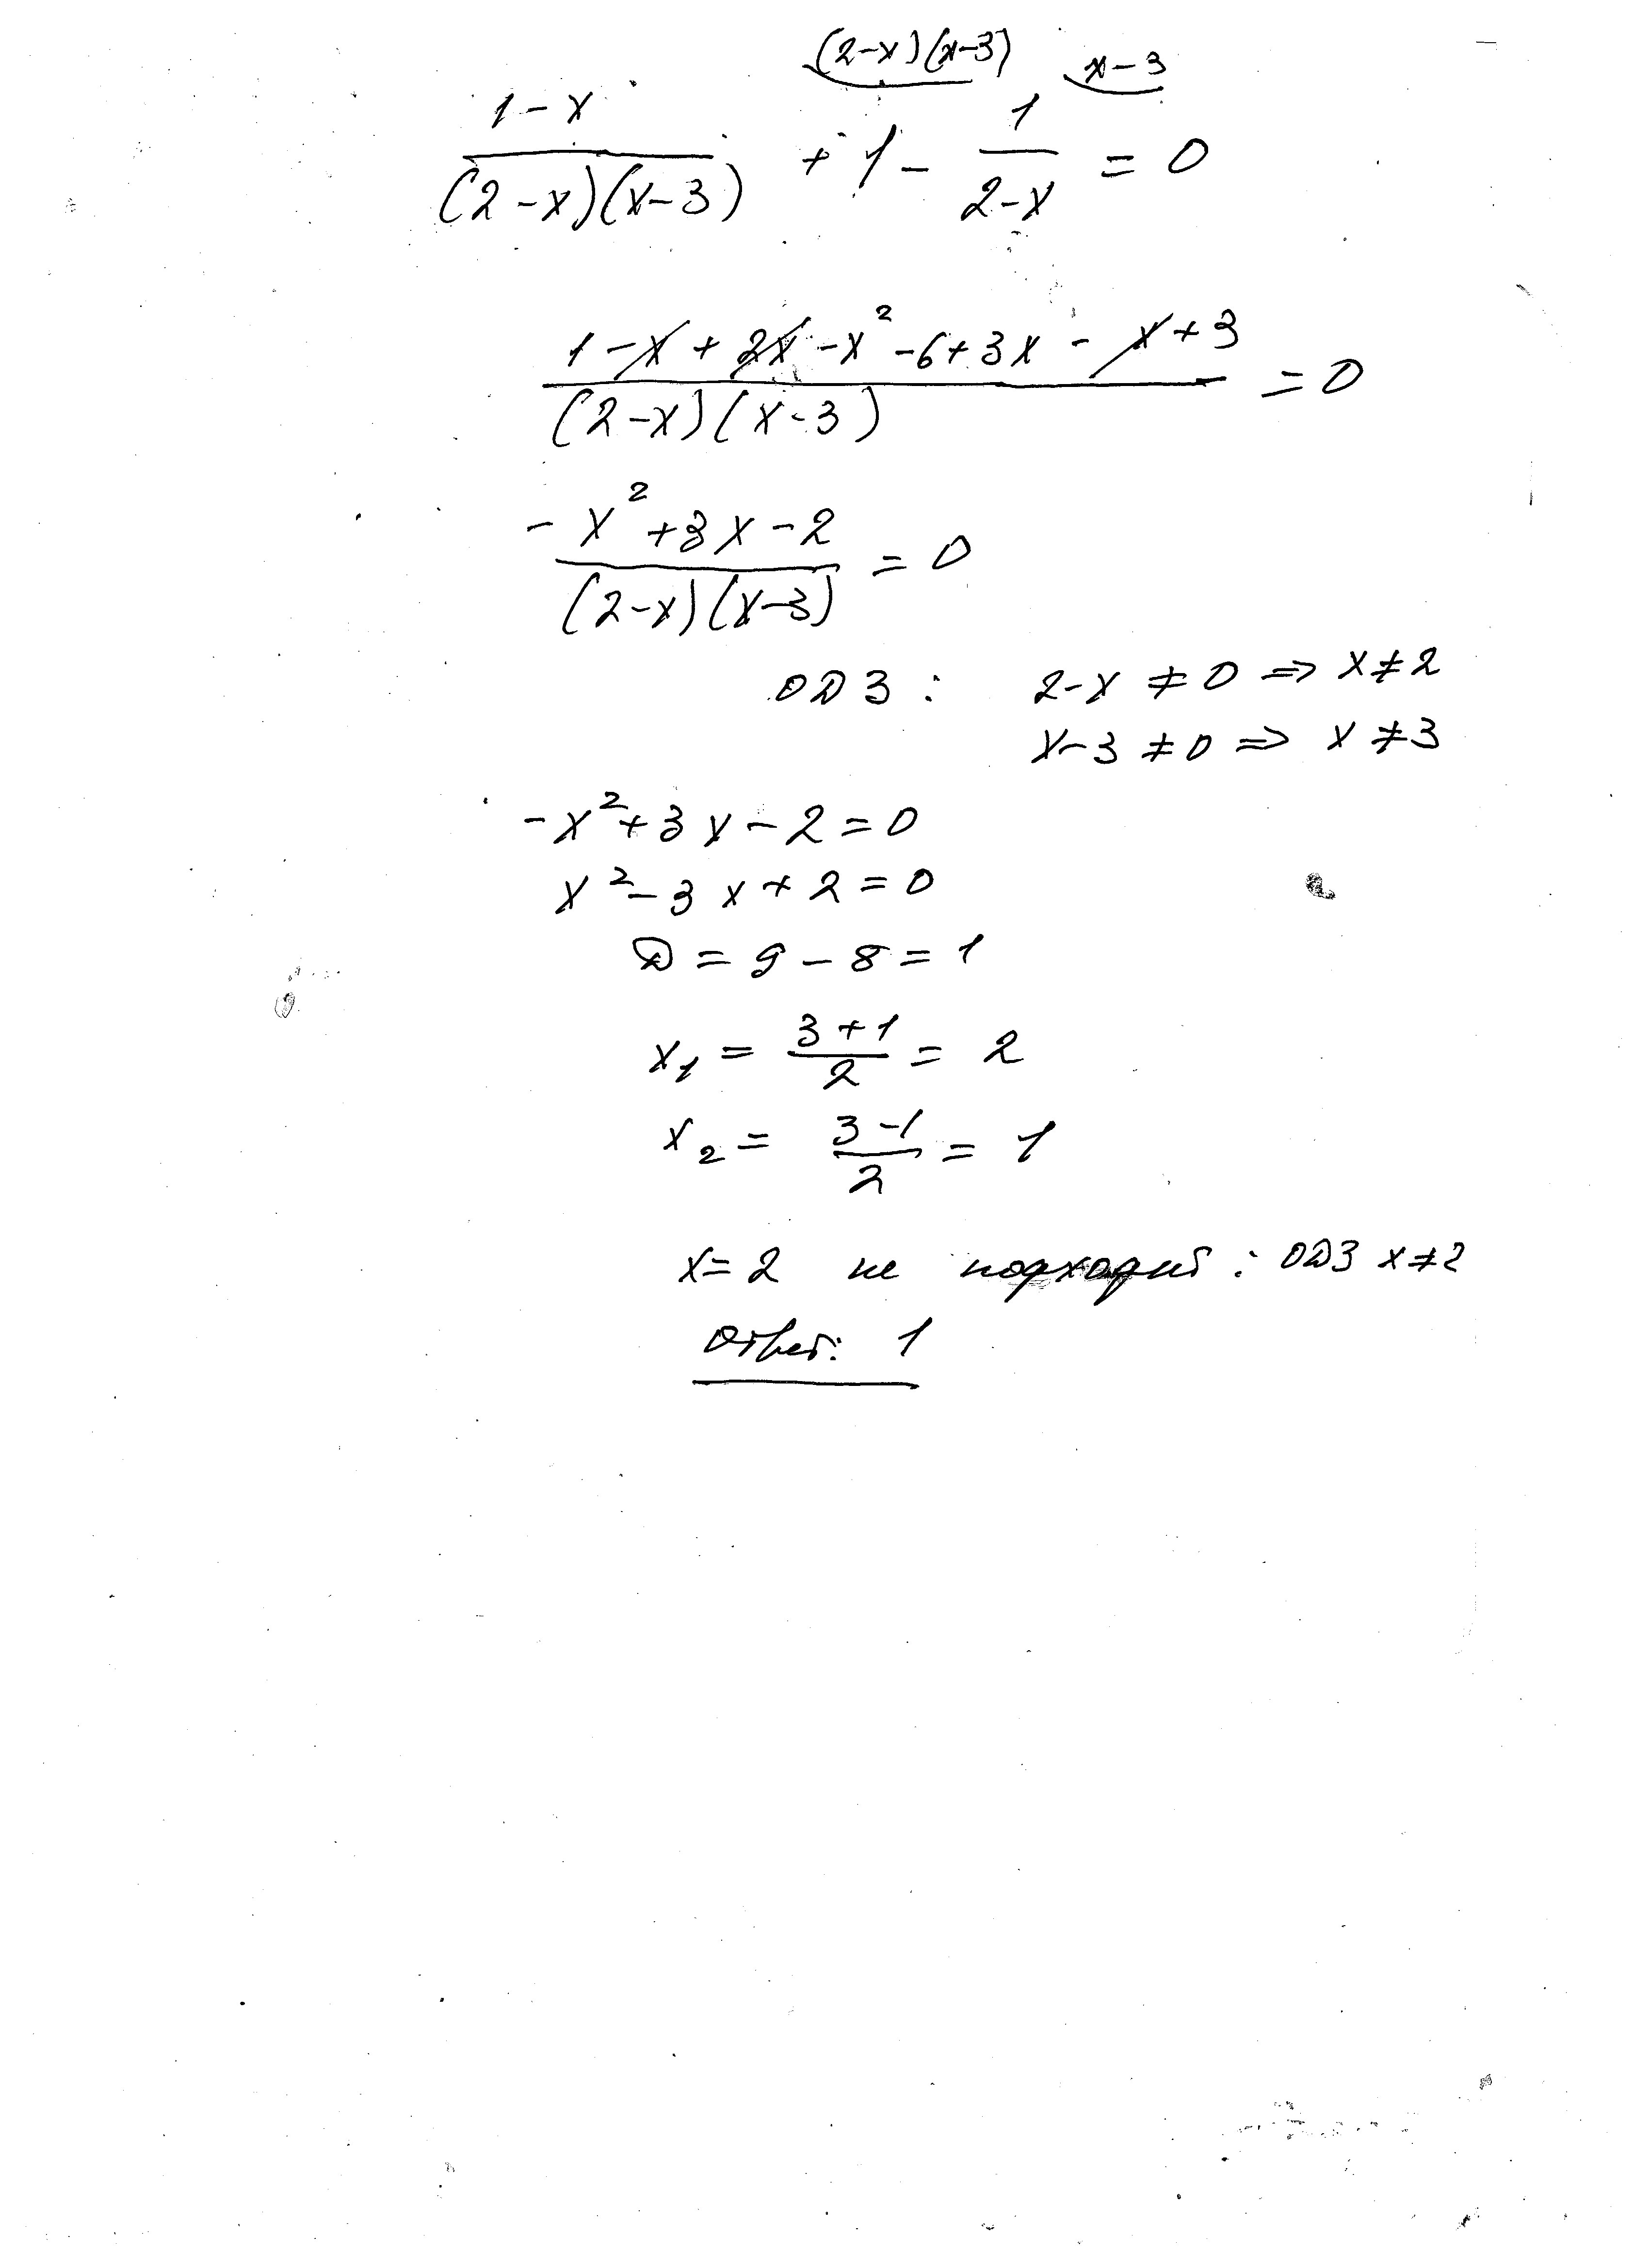 (2-x)(x-3) x-3
1-x / (2-x)(x-3) + 1 - 1 / 2-x = 0
1-x+2x-x²-6+3x-x+3 / (2-x)(x-3) = 0
-x²+3x-2 / (2-x)(x-3) = 0
ОДЗ: 2-x≠0 ⇒ x≠2
x-3≠0 ⇒ x≠3
-x²+3x-2=0
x²-3x+2=0
D=9-8=1
x₁ = 3+1 / 2 = 2
x₂ = 3-1 / 2 = 1
x=2 не подходит: ОДЗ x≠2
Ответ: 1